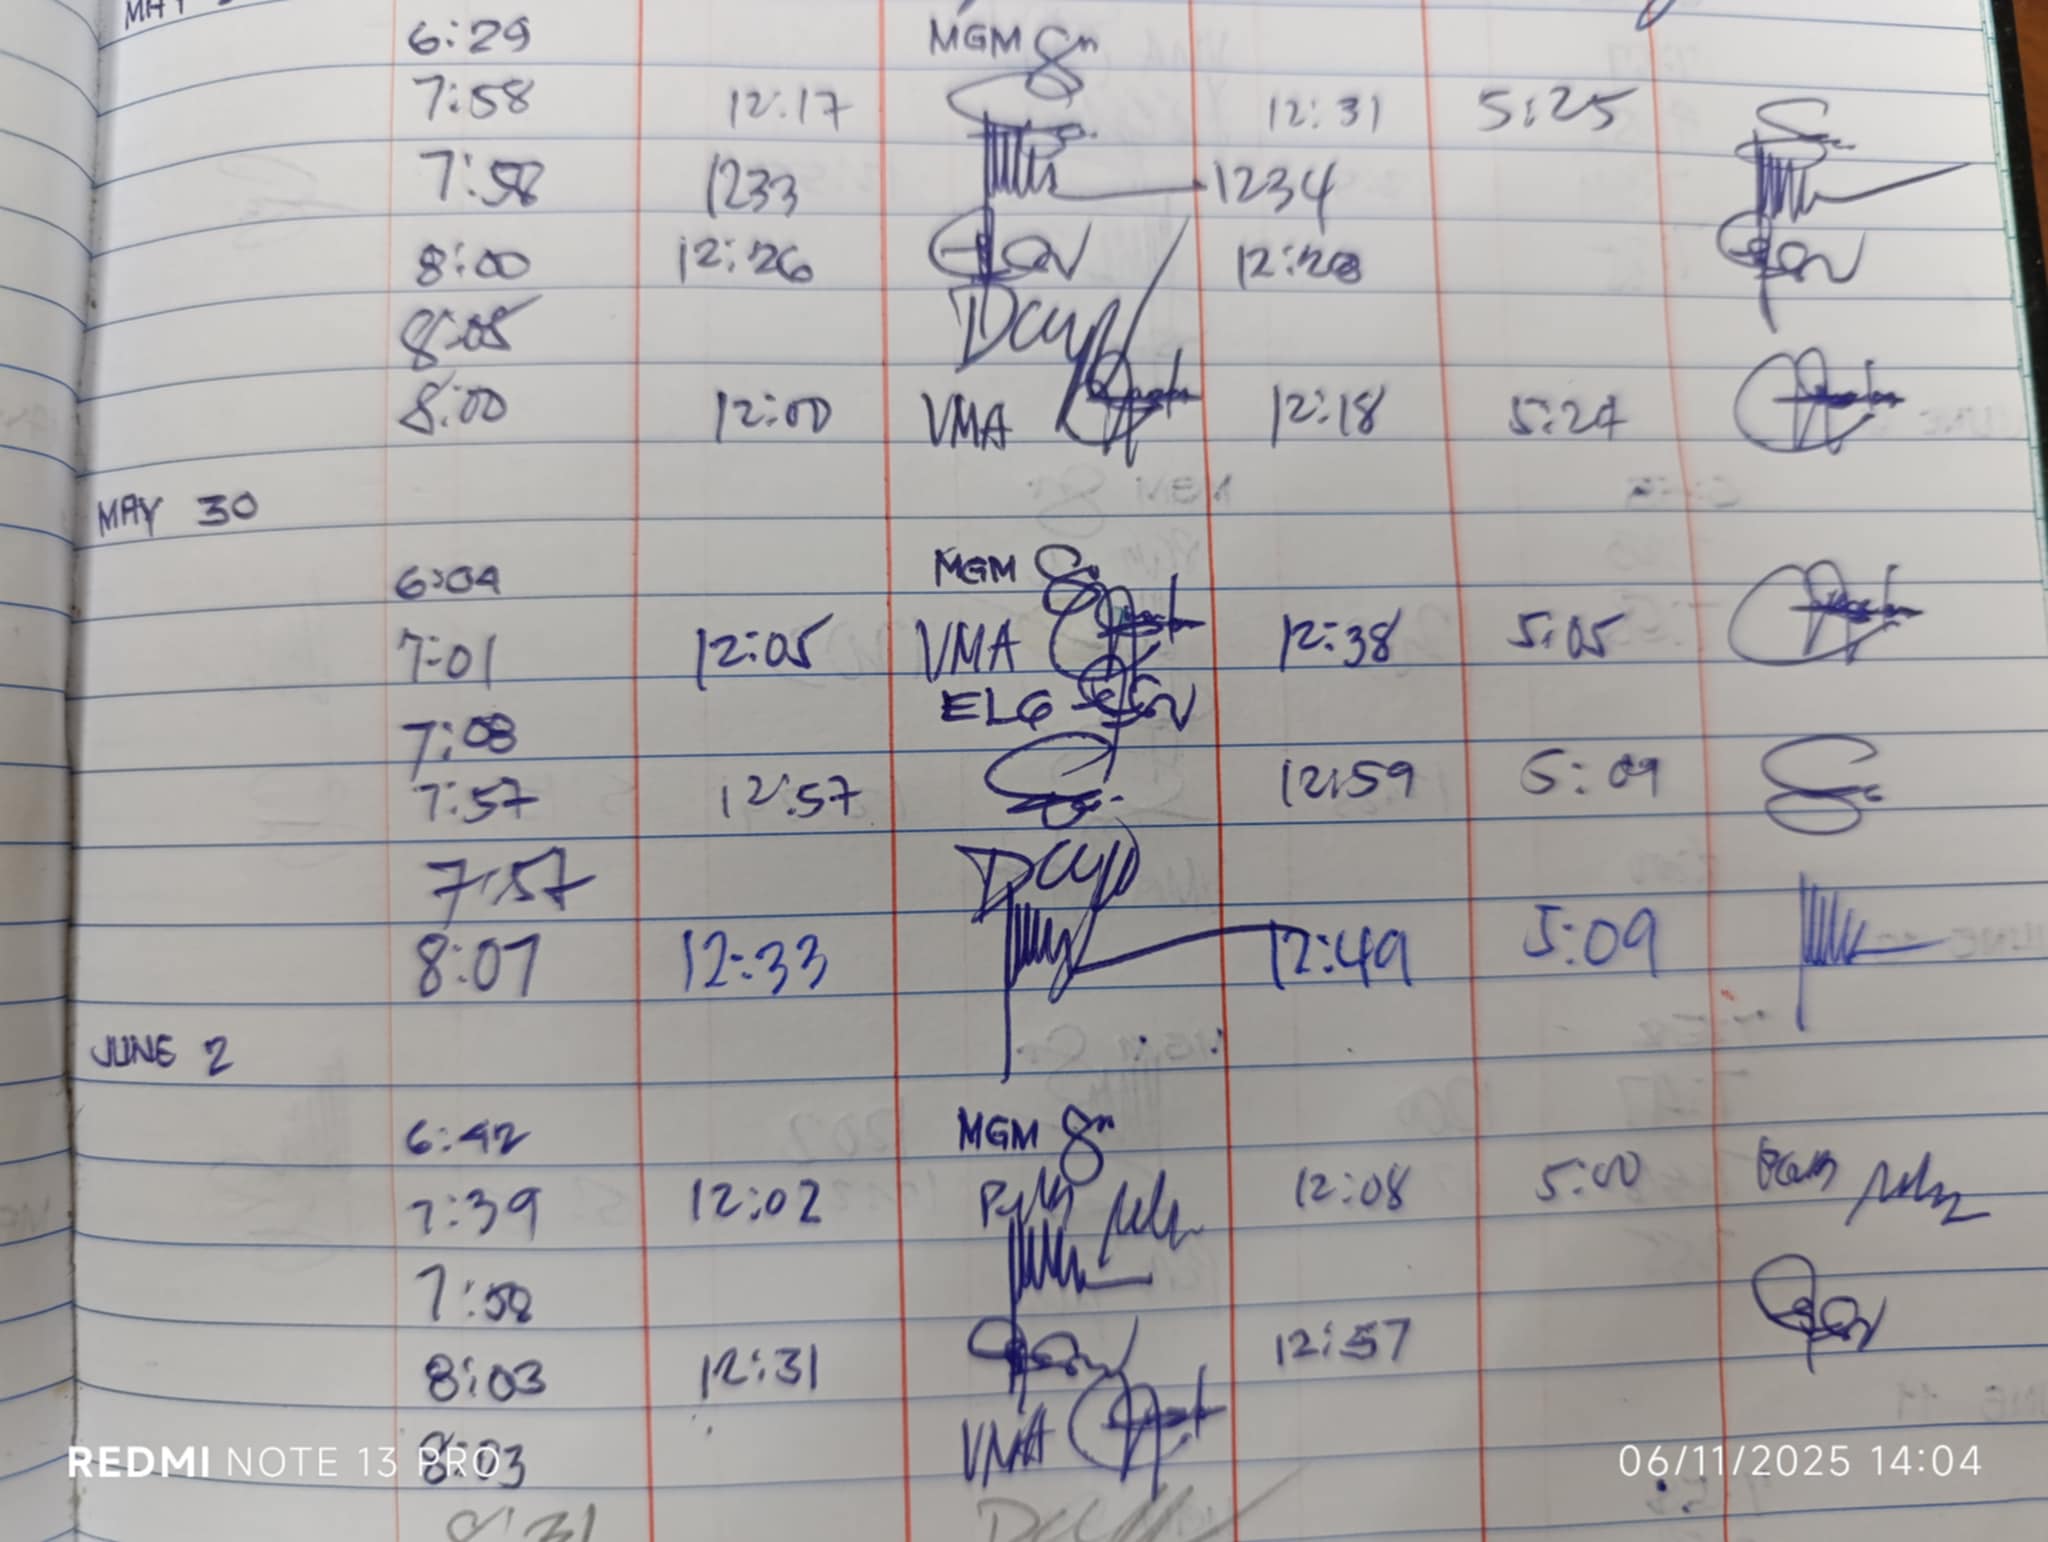 MAY
6:29 MGM
7:58 12:17 12:31 5:25
7:58 1233 1234
8:00 12:26 12:28
8:05
8:00 12:00 VMA 12:18 5:24
MAY 30
6:04 MGM
7:01 12:05 VMA 12:38 5:05
7:08 ELG
7:57 12:57 12:59 5:09
7:57
8:07 12:33 12:49 5:09
JUNE 2
6:42 MGM
7:39 12:02 12:08 5:00
7:58
8:03 12:31 12:57
8:03 VMA
REDMI NOTE 13 PRO 06/11/2025 14:04